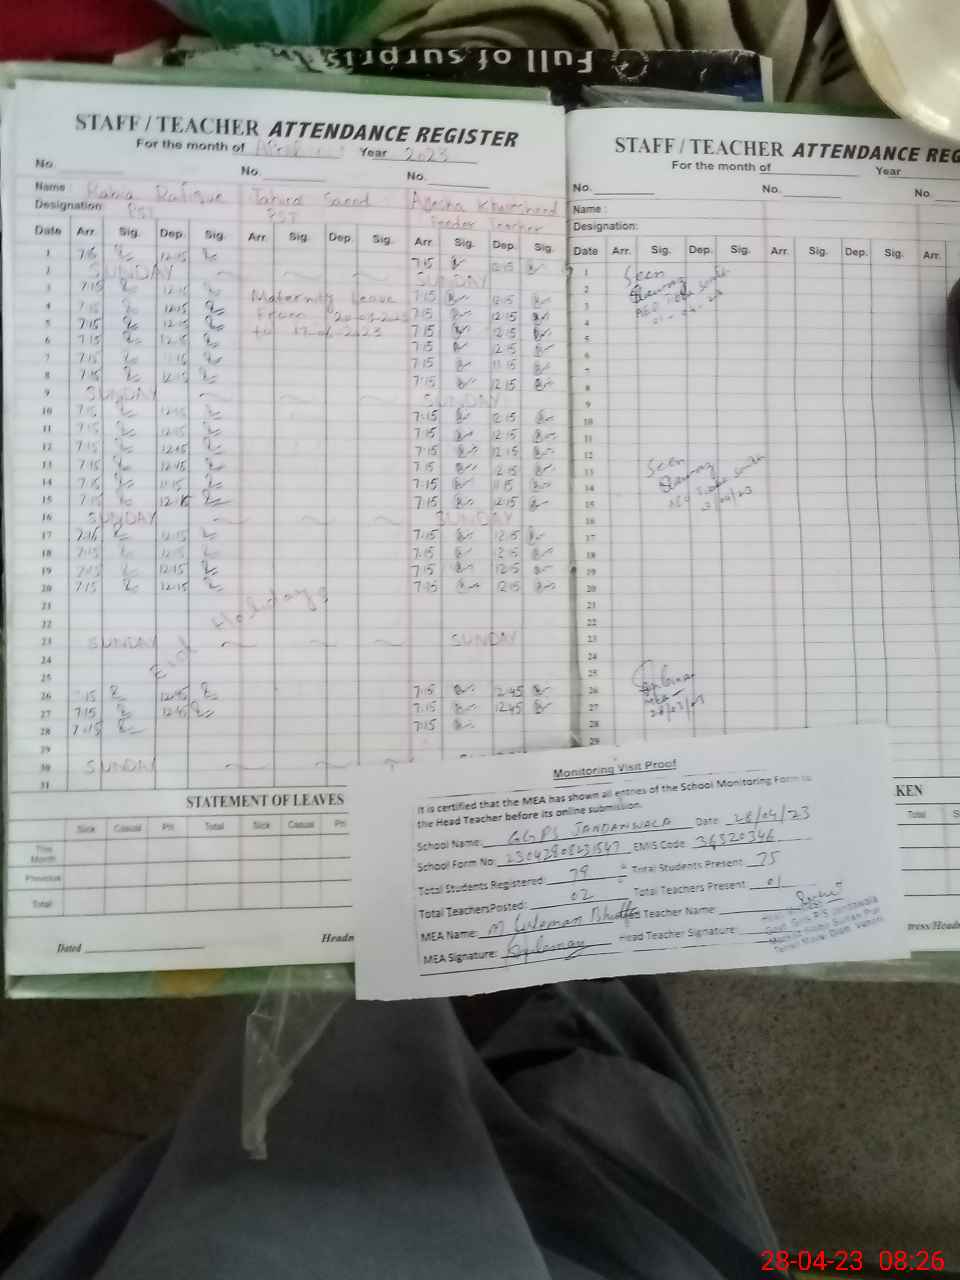 Full of surprises
STAFF / TEACHER ATTENDANCE REGISTER
For the month of April Year 2023
No. No. No.
Name : Rabia Rafique Tahira Saeed Ayesha Khursheed
Designation: PST PST Feeder Teacher
Date Arr. Sig. Dep. Sig. Arr. Sig. Dep. Sig. Arr. Sig. Dep. Sig.
1 7:15 12:15 7:15 12:15
2 SUNDAY SUNDAY
3 7:15 12:15 Maternity Leave 7:15 12:15
4 7:15 12:15 From 7:15 12:15
5 7:15 12:15 to 2023 7:15 12:15
6 7:15 12:15 7:15 12:15
7 7:15 11:15 7:15 11:15
8 7:15 12:15 7:15 12:15
9 SUNDAY SUNDAY
10 7:15 12:15 7:15 12:15
11 7:15 12:15 7:15 12:15
12 7:15 12:15 7:15 12:15
13 7:15 12:15 7:15 12:15
14 7:15 11:15 7:15 11:15
15 7:15 12:15 7:15 12:15
16 SUNDAY SUNDAY
17 7:15 12:15 7:15 12:15
18 7:15 12:15 7:15 12:15
19 7:15 12:15 7:15 12:15
20 7:15 12:15 7:15 12:15
21
22 Eid Holidays
23 SUNDAY SUNDAY
24
25
26 7:15 12:45 7:15 12:45
27 7:15 12:45 7:15 12:45
28 7:15 7:15
29
30 SUNDAY
31
STATEMENT OF LEAVES
Sick Casual Pri Total Sick Casual Pri
This Month
Previous
Total
Dated
Headm
STAFF / TEACHER ATTENDANCE REG
For the month of Year
No. No. No.
Name :
Designation:
Date Arr. Sig. Dep. Sig. Arr. Sig. Dep. Sig. Arr.
1 Seen
2
3 AEO
4
5
6
7
8
9
10
11
12
13 Seen
14
15 AEO
16
17
18
19
20
21
22
23
24
25
26
27 MEA
28
29
KEN
Total
tress/Headm
Monitoring Visit Proof
It is certified that the MEA has shown all entries of the School Monitoring Form to
the Head Teacher before its online submission.
School Name: GGPS JANDANWALA Date 28/04/23
School Form No: 23042808231547 EMIS Code: 36320346
Total Students Registered: 79 Total Students Present: 75
Total TeachersPosted: 02 Total Teachers Present 01
MEA Name: M Suleman Bhutta Head Teacher Name:
MEA Signature: Head Teacher Signature:
28-04-23 08:26